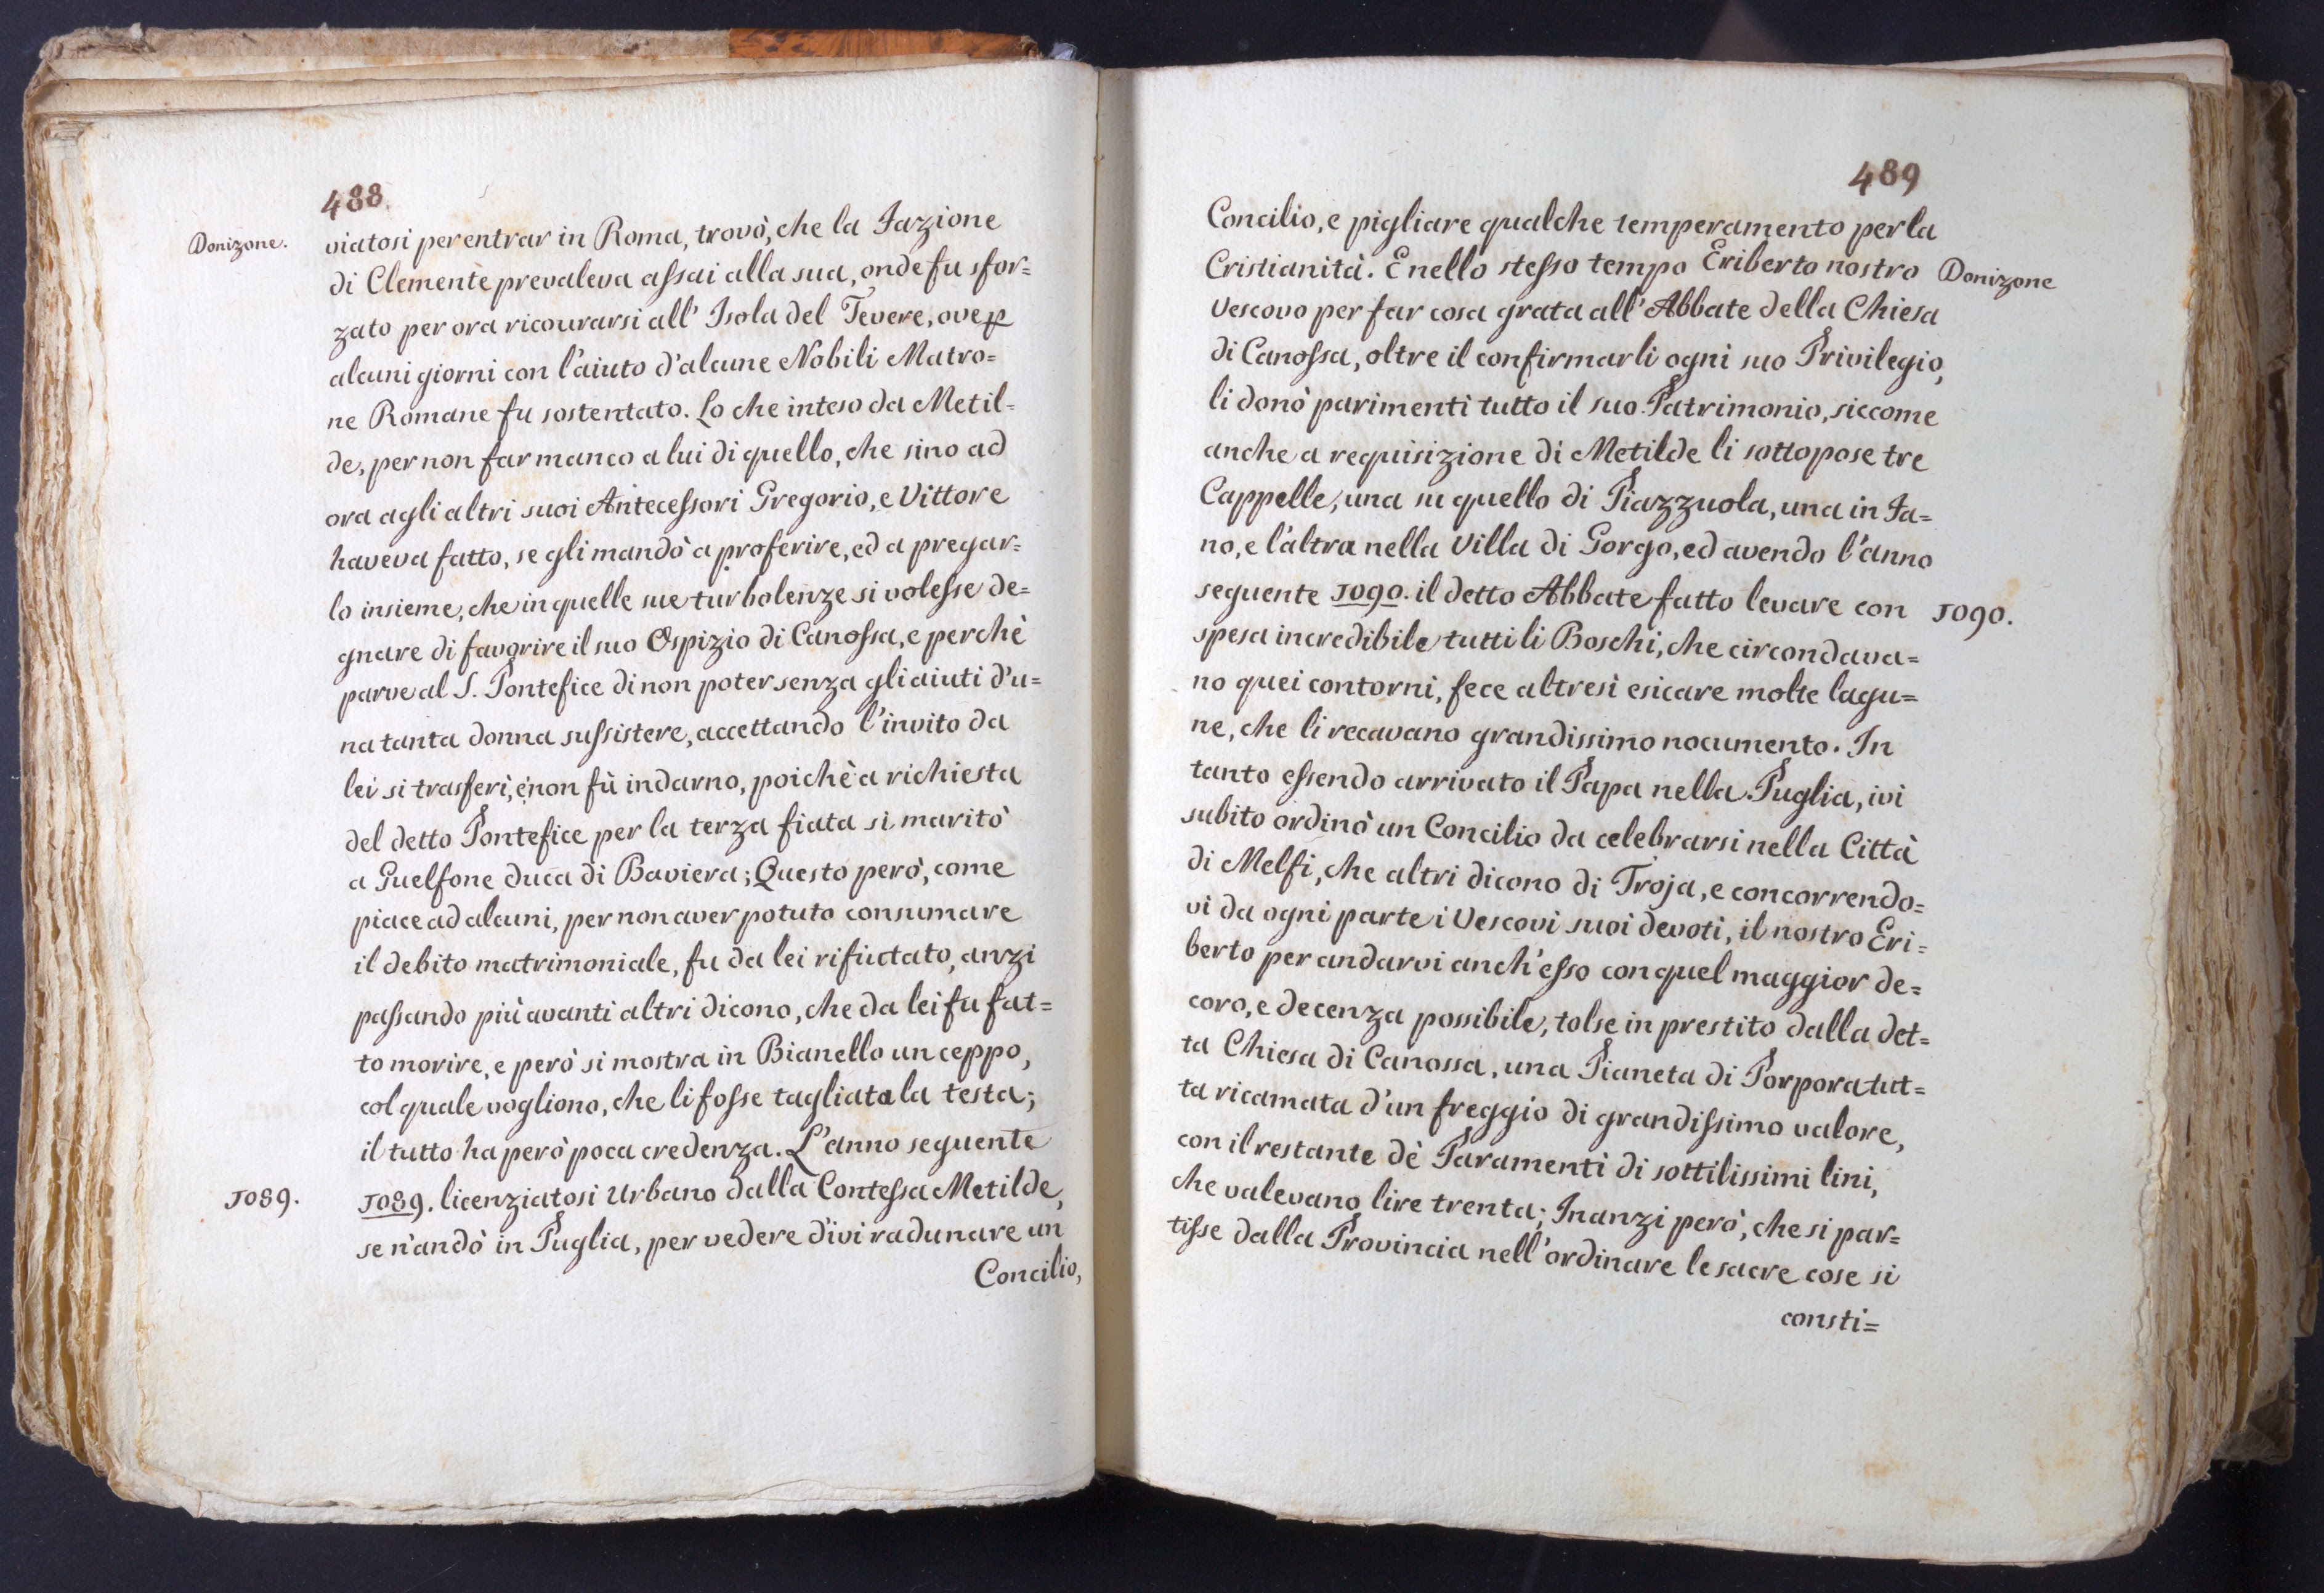 488.
Donizone.
viatosi per entrar in Roma, trovò, che la Fazione
di Clemente prevaleva assai alla sua, onde fu sfor=
zato per ora ricourarsi all' Isola del Tevere, ove ꝑ
alcuni giorni con l'aiuto d'alcune Nobili Matro=
ne Romane fu sostentato. Lo che inteso da Metil=
de, per non far manco a lui di quello, che sino ad
ora agli altri suoi Antecessori Gregorio, e Vittore
haveva fatto, se gli mandò a proferire, ed a pregar=
lo insieme, che in quelle sue turbolenze si volesse de=
gnare di favorire il suo Ospizio di Canossa, e perchè
parve al S. Pontefice di non poter senza gli aiuti d'u=
na tanta donna sussistere, accettando l'invito da
lei si trasferì, è non fù indarno, poichè a richiesta
del detto Pontefice per la terza fiata si maritò
a Guelfone duca di Baviera; Questo però, come
piace ad alcuni, per non aver potuto consumare
il debito matrimoniale, fu da lei rifiutato, anzi
passando più avanti altri dicono, che da lei fu fat=
to morire, e però si mostra in Bianello un ceppo,
col quale vogliono, che li fosse tagliata la testa;
il tutto ha però poca credenza. L'anno seguente
1089.
1089. licenziatosi Urbano dalla Contessa Metilde,
se n'andò in Puglia, per vedere d'ivi radunare un
Concilio,
489
Concilio, e pigliare qualche temperamento per la
Cristianità. E nello stesso tempo Eriberto nostro
Donizone
Vescovo per far cosa grata all' Abbate della Chiesa
di Canossa, oltre il confirmarli ogni suo Privilegio,
li donò parimenti tutto il suo Patrimonio, siccome
anche a requisizione di Metilde li sottopose tre
Cappelle, una su quello di Piazzuola, una in Fa=
no, e l'altra nella Villa di Gorgo, ed avendo l'anno
seguente 1090. il detto Abbate fatto levare con
1090.
spesa incredibile tutti li Boschi, che circondava=
no quei contorni, fece altresì esicare molte lagu=
ne, che li recavano grandissimo nocumento. In
tanto essendo arrivato il Papa nella Puglia, ivi
subito ordinò un Concilio da celebrarsi nella Città
di Melfi, che altri dicono di Troja, e concorrendo=
vi da ogni parte i Vescovi suoi devoti, il nostro Eri=
berto per andarvi anch'esso con quel maggior de=
coro, e decenza possibile, tolse in prestito dalla det=
ta Chiesa di Canossa, una Pianeta di Porpora tut=
ta ricamata d'un freggio di grandissimo valore,
con il restante dè Paramenti di sottilissimi lini,
che valevano lire trenta; Inanzi però, che si par=
tisse dalla Provincia nell'ordinare le sacre cose si
consti=